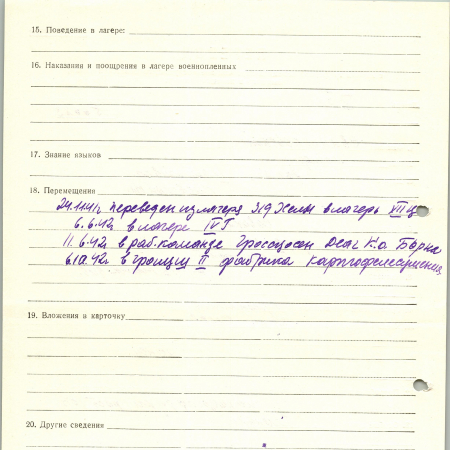 15. Поведение в лагере:
16. Наказания и поощрения в лагере военнопленных
17. Знание языков
18. Перемещения
24.11.41г. переведен из лагеря 319 Хелм в лагерь VIII Ц
6.6.42г. в лагере IV Г
11.6.42г. в раб. команде Гроссцосен К.о. Борна
6.10.42г. в Гройцш II фабрика
19. Вложения в карточку
20. Другие сведения